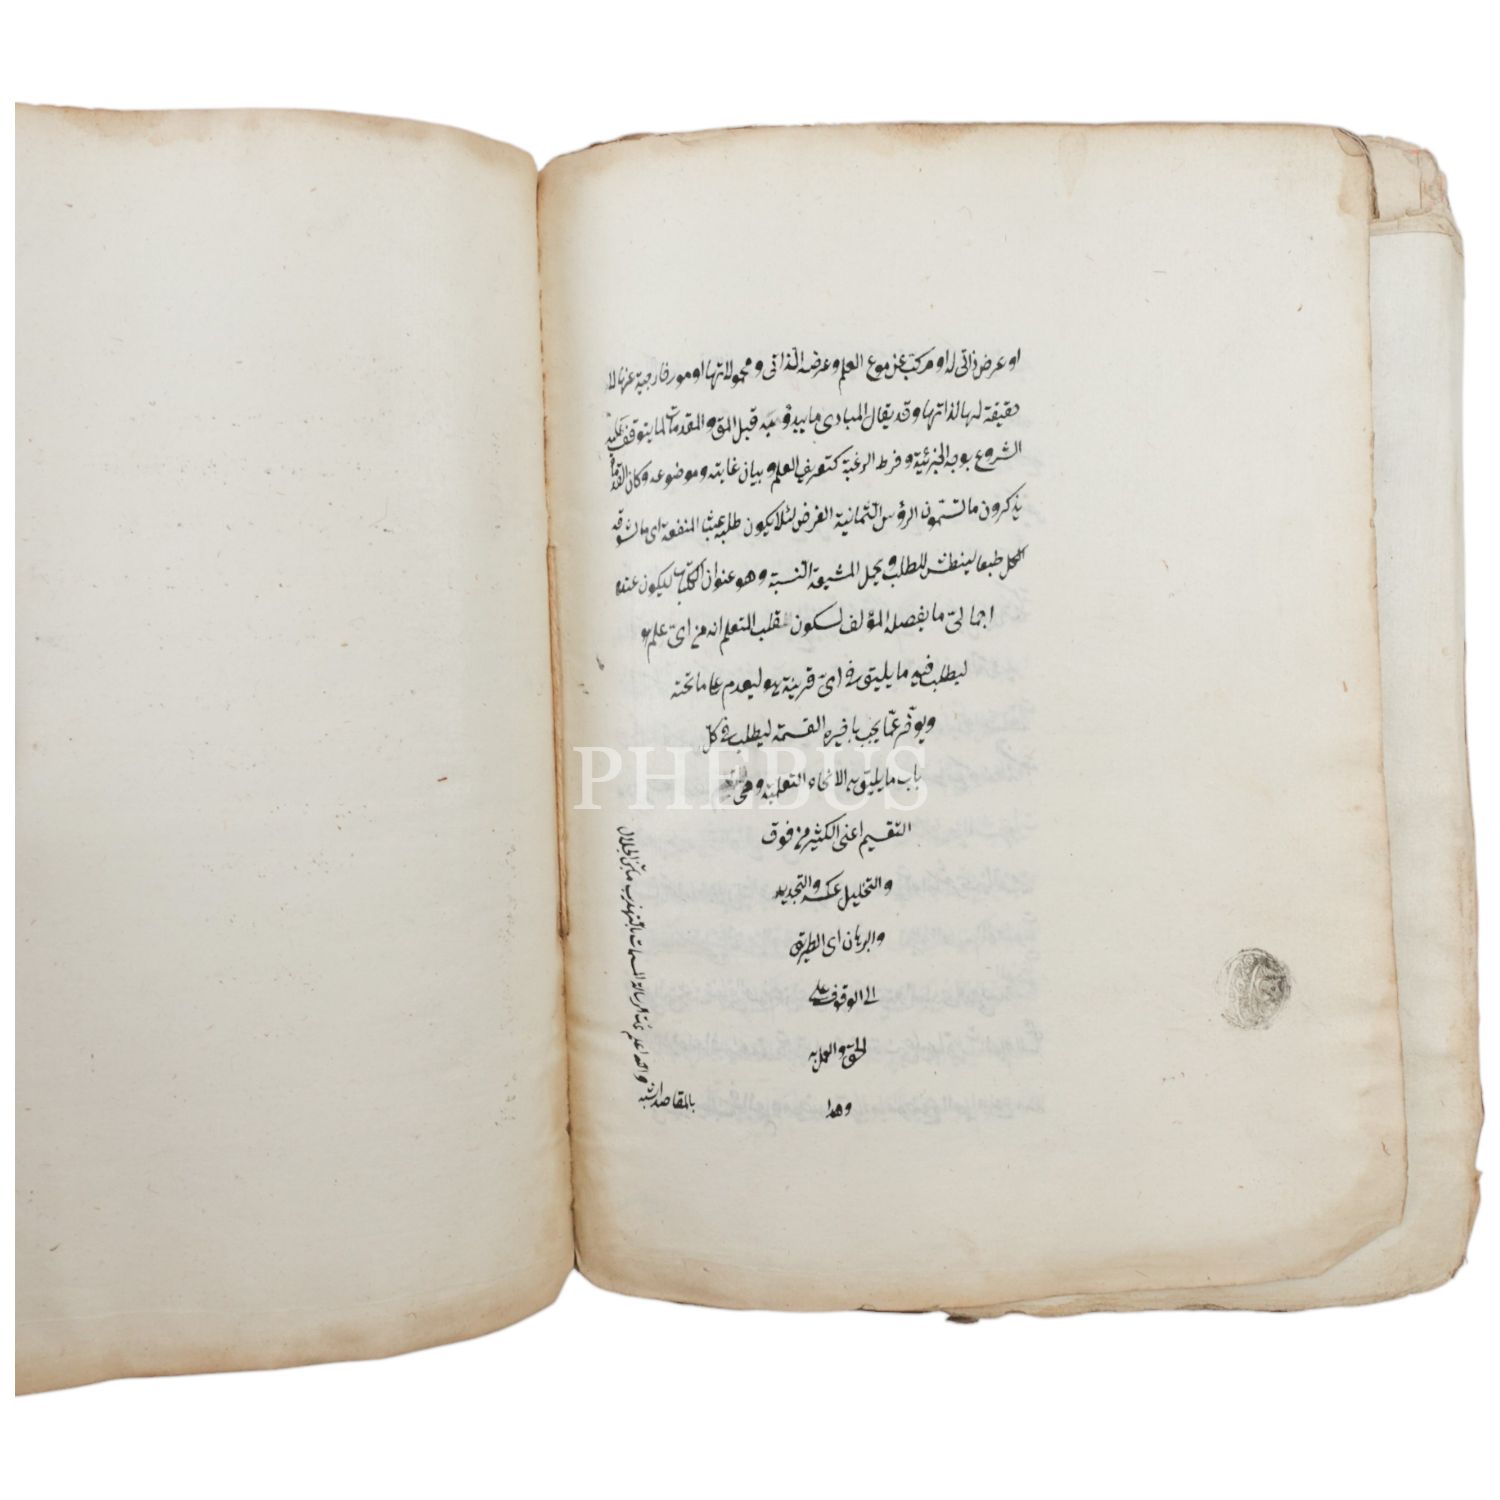 او عرض ذاتى له او مركب عن موع العلم وعرضه الذاتى و محمولاتها امور خارجية عنها لا
حقيقة لها لذاتها وقد يقال المبادى ما يبدؤ به قبل المق والمقدمات لما يتوقف عليه
الشروع بوجه الخبرئية و فرط الرغبة كتعريف العلم و بيان غايته و موضوعه وكان القدما
يذكرون ما لتسمون الرؤس الثمانية الغرض لئلا يكون طلبه عبثا المنفعة اى ما يشوقه
الكل طبعا لينطش للطلب و يحل المشيعة التسبة وهو عنوان الكتاب ليكون عنده
اجمالى ما يفصله المؤلف لسكون لقلب المتعلم انه من اى علم هو
ليطلب فيه ما يليق فى اى قرينة هو ليعدم على ما تحته
ويؤخر عما يجب باخيره القسمة ليطلب فى كل
باب ما يليق به الانحاء التعلمية وهى
التقيسم اعنى الكثير من فوق
والتخليل عكسه والتجديد
والبرهان اى الطريق
الى الوقوف على
الحق والعمل به
وهدا
بالمقاصد اشبه
والله اعلم تمت الرسالة المسمات بالتهذيب متن الجلال
PHEBUS